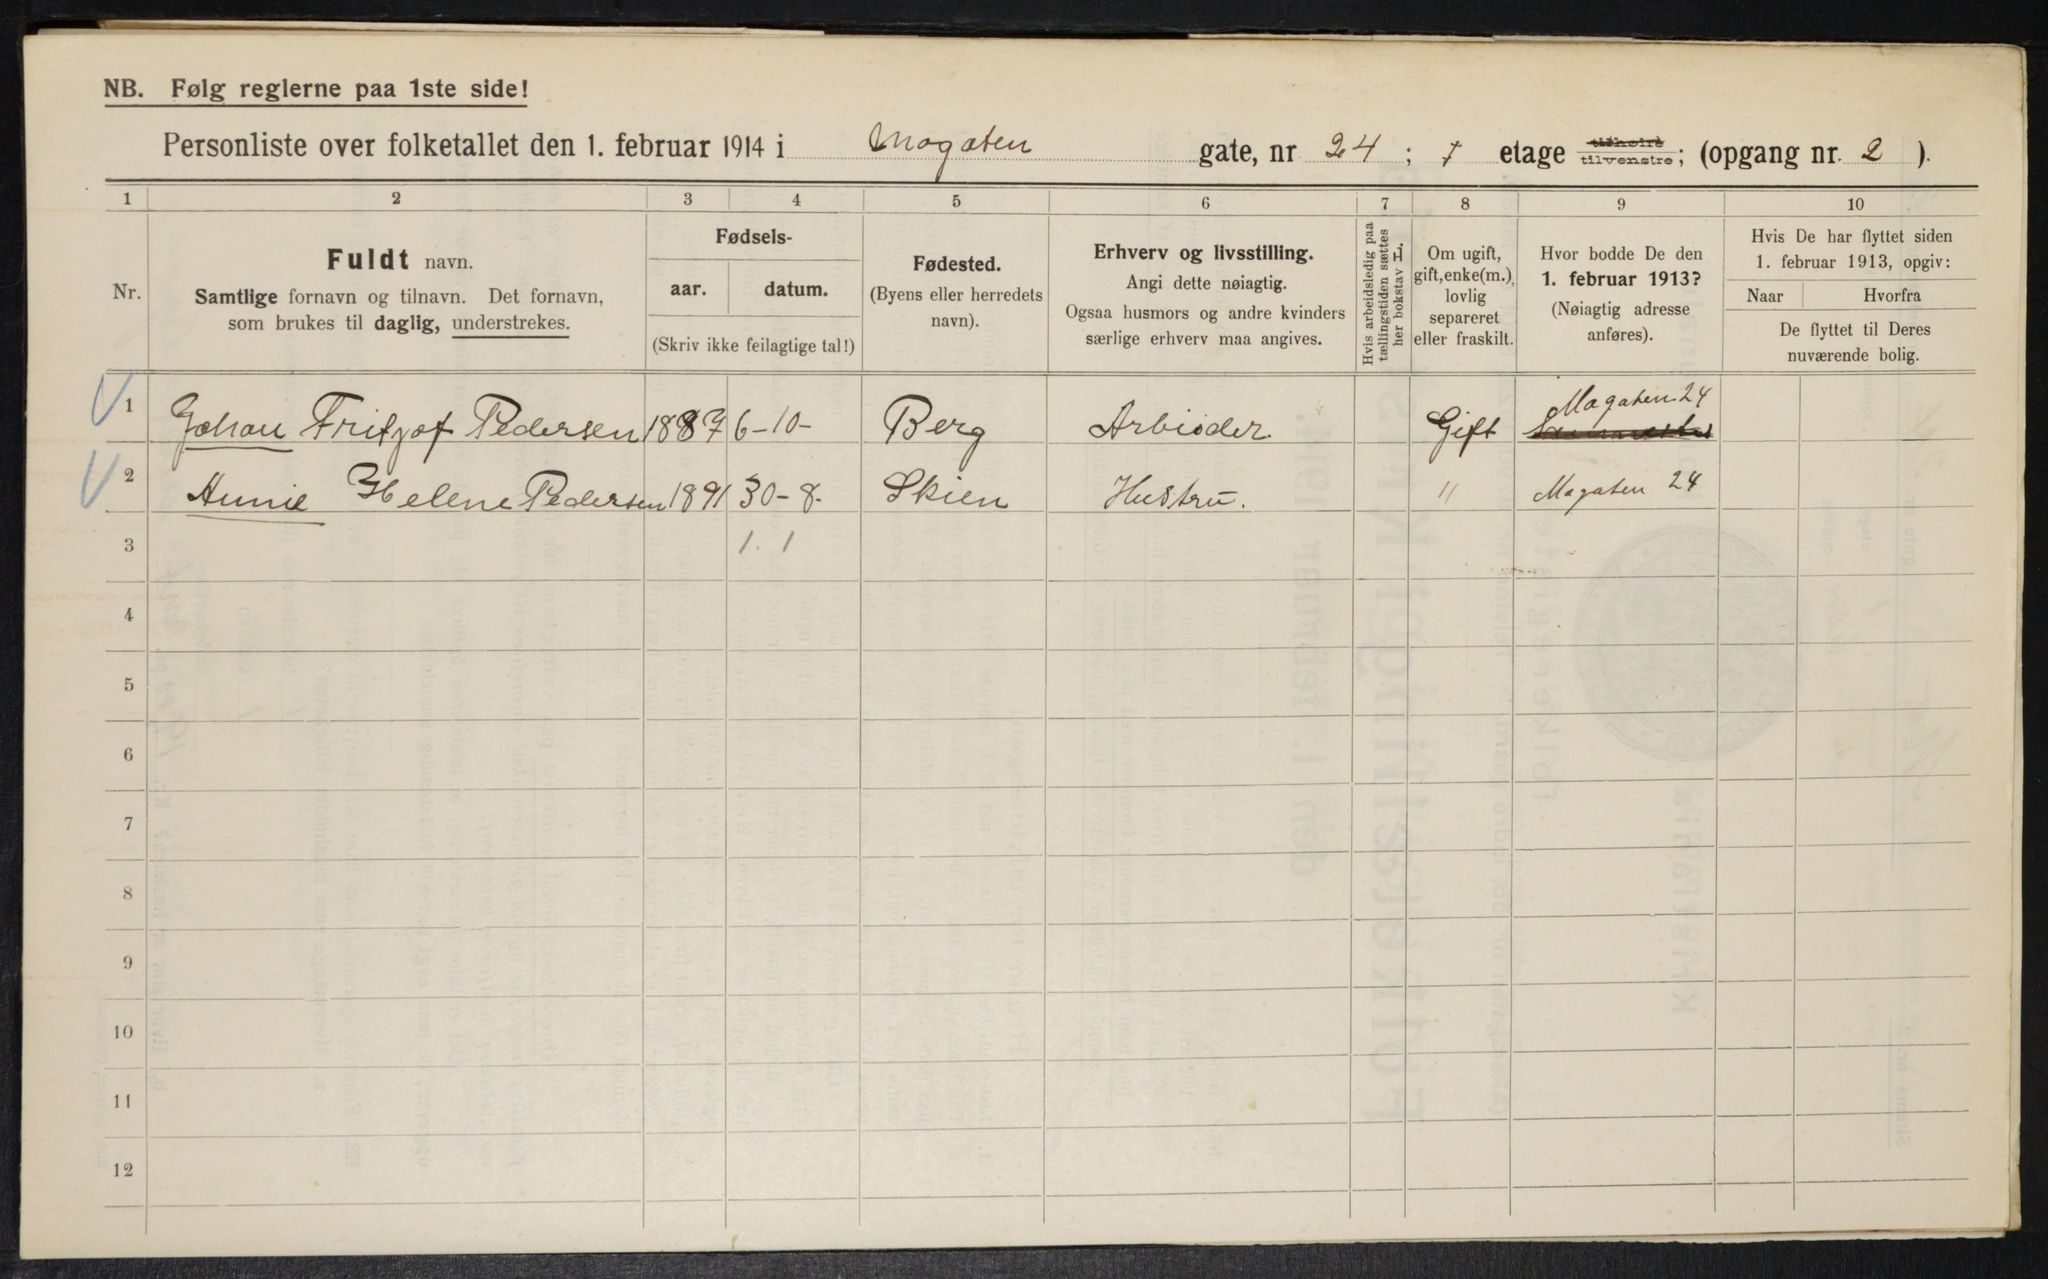 NB. Følg reglerne paa 1ste side!
Personliste over folketallet den 1. februar 1914 i Magaten gate, nr 24; 1 etage tilhøire tilvenstre; (opgang nr. 2 ).
1 2 3 4 5 6 7 8 9 10
Nr.
Fuldt navn.
Samtlige fornavn og tilnavn. Det fornavn,
som brukes til daglig, understrekes.
Fødsels-
aar. datum.
(Skriv ikke feilagtige tal!)
Fødested.
(Byens eller herredets
navn).
Erhverv og livsstilling.
Angi dette nøiagtig.
Ogsaa husmors og andre kvinders
særlige erhverv maa angives.
Hvis arbeidsledig paa
tællingstiden sættes
her bokstav L.
Om ugift,
gift, enke(m.),
lovlig
separeret
eller fraskilt.
Hvor bodde De den
1. februar 1913?
(Nøiagtig adresse
anføres).
Hvis De har flyttet siden
1. februar 1913, opgiv:
Naar Hvorfra
De flyttet til Deres
nuværende bolig.
1 Johan Fritjof Pedersen 1887 6-10- Berg Arbioder. Gift Magaten 24
2 Annie Helene Pedersen 1891 30-8- Skien Hustru. " Magaten 24
3 1. 1
4
5
6
7
8
9
10
11
12